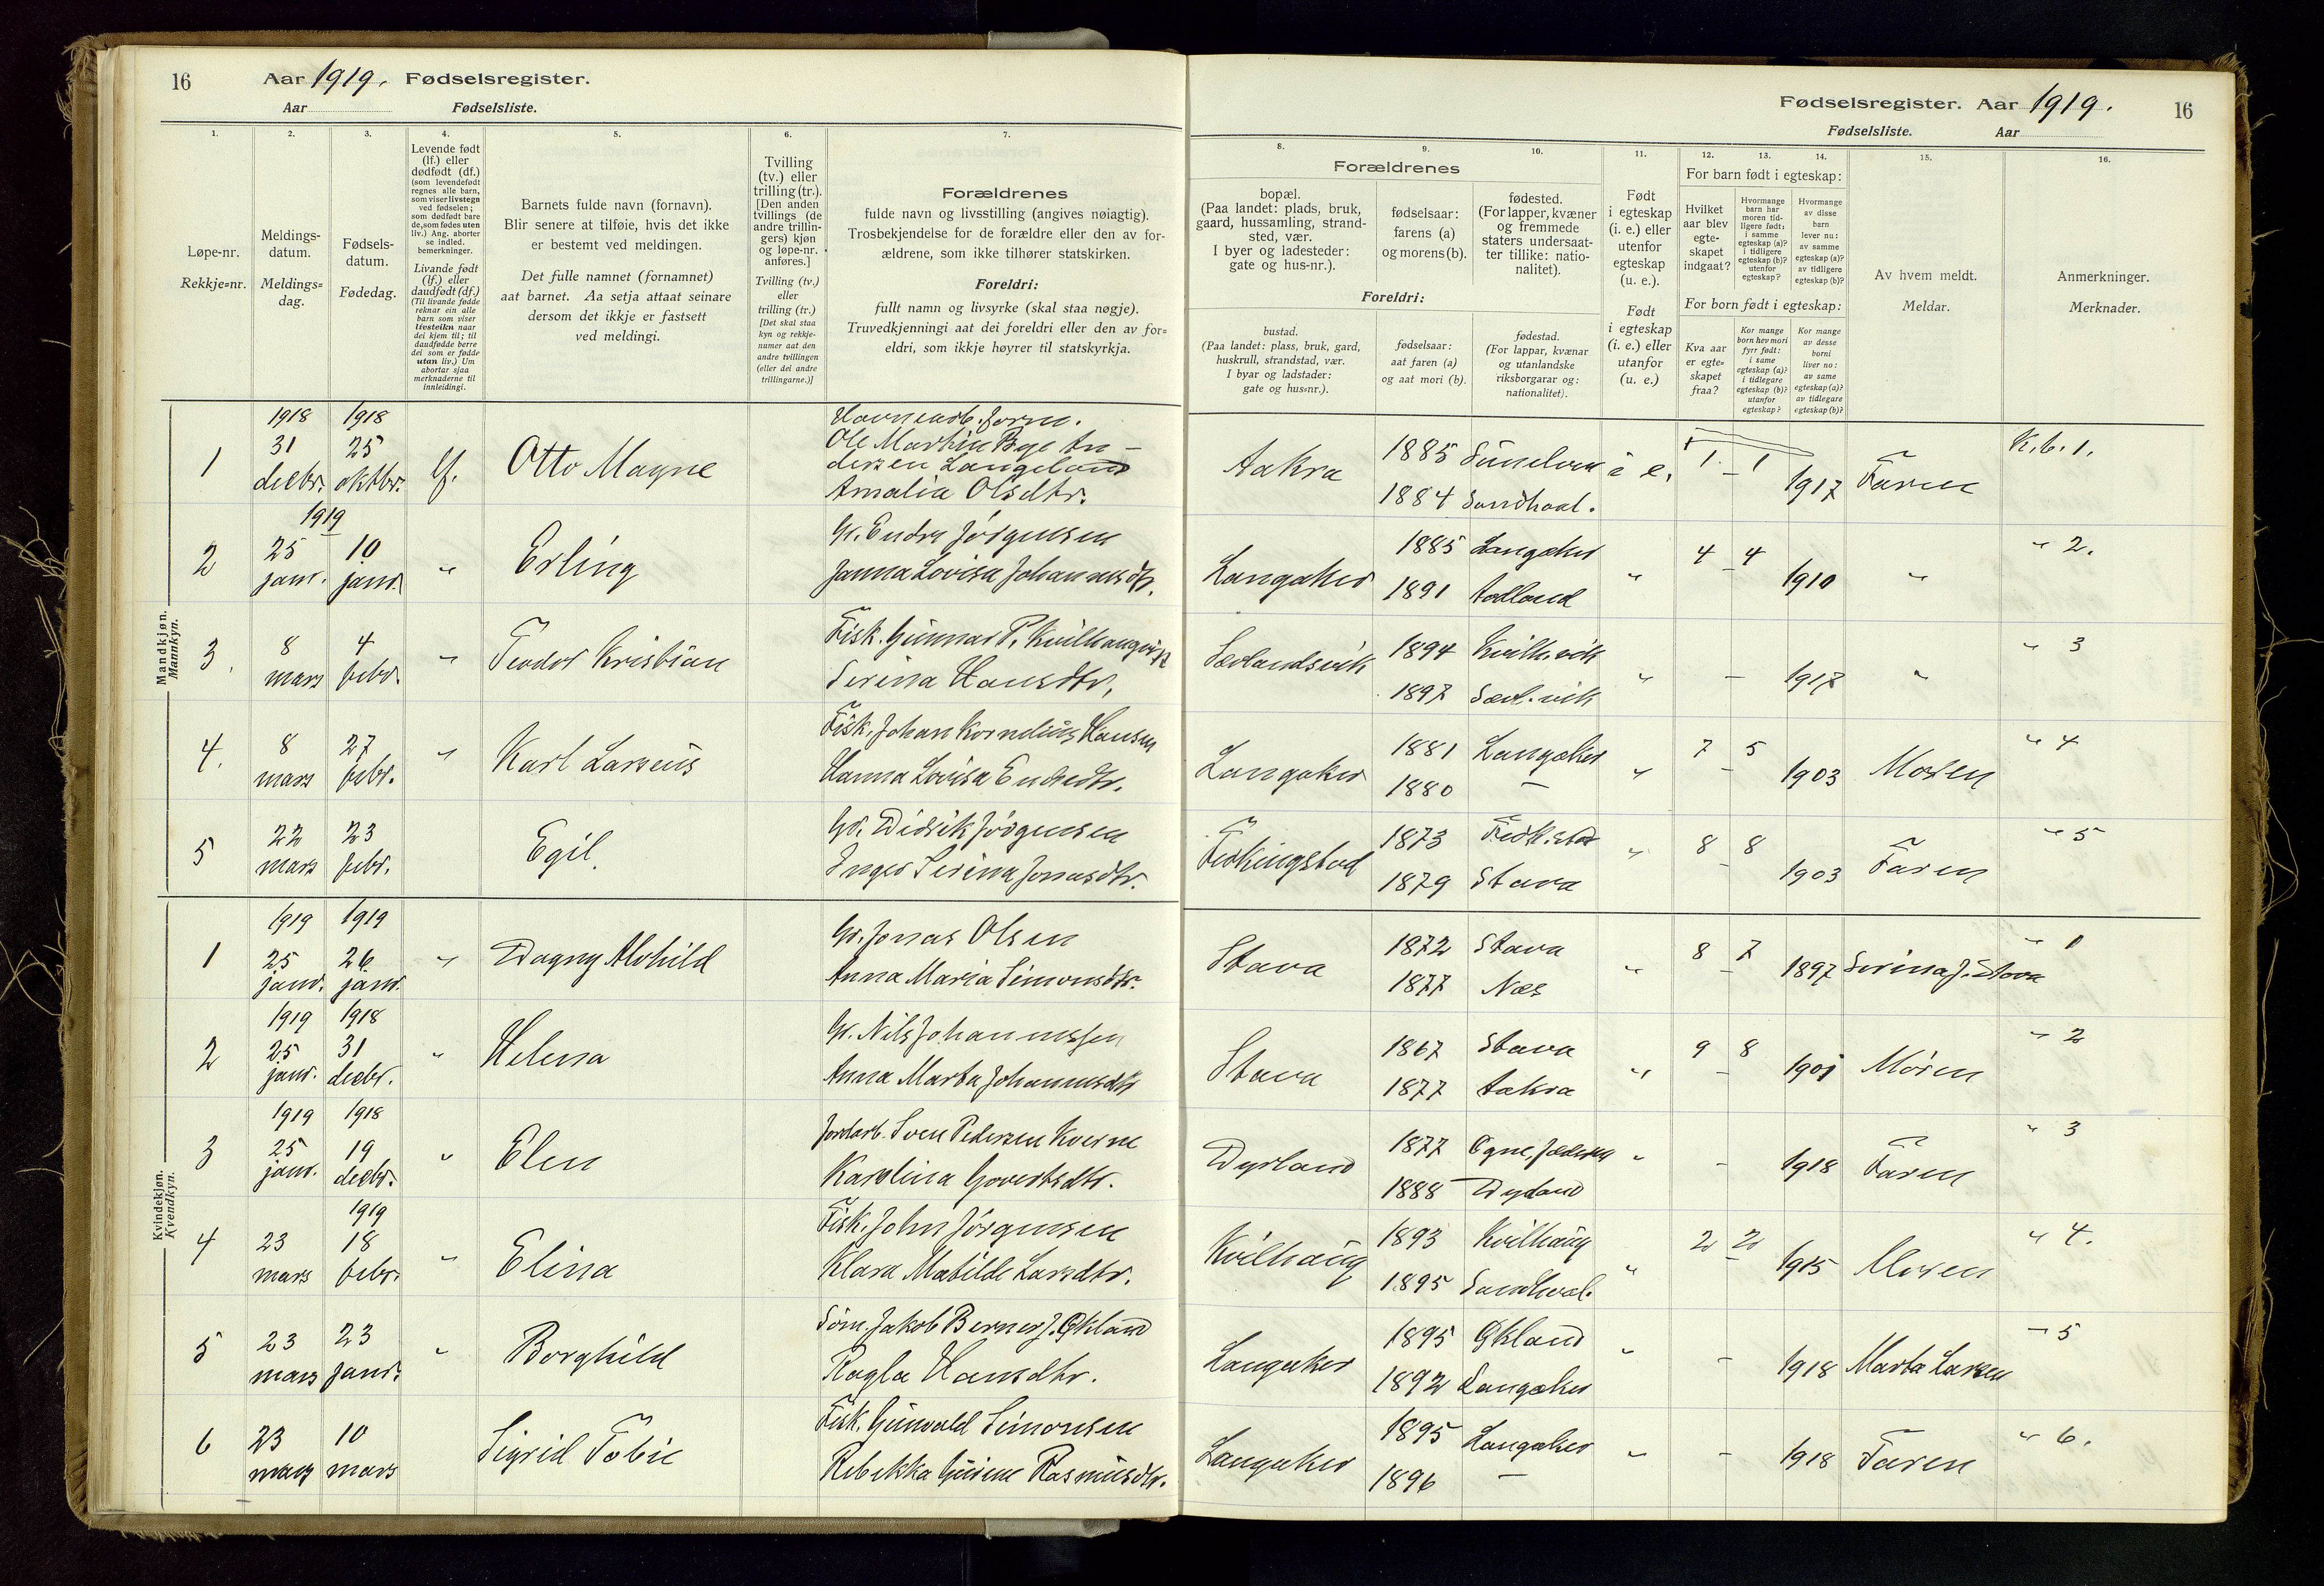 16 Aar 1919. Fødselsregister.
Aar Fødselsliste.
1. 2. 3. 4. 5. 6. 7.
Løpe-nr.
Rekkje=nr.
Meldings-
datum.
Meldings=
dag.
Fødsels-
datum.
Fødedag.
Levende født
(lf.) eller
dødfødt (df.)
(som levendefødt
regnes alle barn,
som viser livstegn
ved fødselen;
som dødfødt bare
de, som fødes uten
liv.) Ang. aborter
se indled.
bemerkninger.
Livande født
(lf.) eller
daudfødt (df.)
(Til livande fødde
reknar ein alle
barn som viser
livsteikn naar
dei kjem til; til
daudfødde berre
dei som er fødde
utan liv.) Um
abortar sjaa
merknaderne til
innleidingi.
Barnets fulde navn (fornavn).
Blir senere at tilføie, hvis det ikke
er bestemt ved meldingen.
Det fulle namnet (fornamnet)
aat barnet. Aa setja attaat seinare
dersom det ikkje er fastsett
ved meldingi.
Tvilling
(tv.) eller
trilling (tr.).
[Den anden
tvillings (de
andre trillin-
gers) kjøn
og løpe-nr.
anføres.]
Tvilling (tv.)
eller
trilling (tr.)
[Det skal staa
kyn og rekkje-
numer aat den
andre tvillingen
(eller dei andre
trillingarne.)]
Forældrenes
fulde navn og livsstilling (angives nøiagtig).
Trosbekjendelse for de forældre eller den av for-
ældrene, som ikke tilhører statskirken.
Foreldri:
fullt namn og livsyrke (skal staa nøgje).
Truvedkjenningi aat dei foreldri eller den av for=
eldri, som ikkje høyrer til statskyrkja.
Mandkjøn.
Mannkyn.
1918 1918
1 31 decbr. 25 oktbr. lf. Otto Magne
Ole Martin Bye An-
dersen Langeland
Amalia Olsdtr.
1919
2 25 janr. 10 janr. " Erling
Gr. Endre Jørgensen
Janna Lovisa Johannesdtr.
3. 8 mars 4 febr. " Teodor Kristian
Fisk. Gunnar P. Kvilhaugvik
Serina Hansdtr.
4. 8 mars 27 febr. " Karl Larseus
Fisk. Johan Kornelius Hansen
Hanna Lovisa Endredtr.
5 22 mars 23 febr. Egil.
Gr. Didrik Jørgensen
Inger Serina Jonasdtr.
Kvindekjøn.
Kvendkyn.
1919 1919
1 25 janr. 26 janr. " Dagny Alvhild
Gr. Jonas Olsen
Anna Maria Simonsdtr.
1919 1918
2 25 janr. 31 decbr. " Helena
Gr. Nils Johannessen
Anna Marta Johannesdtr
1919 1918
3 25 janr. 19 decbr. " Elen
Jordarb. Sven Pedersen Kverne
Karolina Govertsdtr.
1919
4 23 mars 18 febr. " Elina
Fisk. John Jørgensen
Klara Matilde Larsdtr.
5 23 mars 23 janr. " Borghild
Søm. Jakob Berner J. Økland
Ragla Hansdtr.
6 23 mars 10 mars Sigrid Tobie
Fisk. Gunvald Simonsen
Rebekka Gurine Rasmusdtr.
Fødselsregister. Aar 1919. 16
Fødselsliste. Aar
8. 9. 10. 11. 12. 13. 14. 15. 16.
Forældrenes
bopæl.
(Paa landet: plads, bruk,
gaard, hussamling, strand-
sted, vær.
I byer og ladesteder:
gate og hus-nr.).
fødselsaar:
farens (a)
og morens (b).
fødested.
(For lapper, kvæner
og fremmede
staters undersaat-
ter tillike: natio-
nalitet).
Foreldri:
bustad.
(Paa landet: plass, bruk, gard,
huskrull, strandstad, vær.
I byar og ladstader:
gate og hus=nr.).
fødselsaar:
aat faren (a)
og aat mori (b).
fødestad.
(For lappar, kvænar
og utanlandske
riksborgarar og:
nationalitet).
Født
i egteskap
(i. e.) eller
utenfor
egteskap
(u. e.).
Født
i egteskap
(i. e.) eller
utanfor
(u. e.)
For barn født i egteskap:
Hvilket
aar blev
egte-
skapet
indgaat?
Hvormange
barn har
moren tid-
ligere født:
i samme
egteskap (a)?
i tidligere
egteskap (b)?
utenfor
egteskap?
Hvormange
av disse
barn
lever nu:
av samme
egteskap (a)?
av tidligere
egteskap (b)?
For born født i egteskap:
Kva aar
er egte=
skapet
fraa?
Kor mange
born hev mori
fyrr født:
i same
egteskap (a)?
i tidlegare
egteskap (b)?
utanfor
egteskap?
Kor mange
av desse
borni
liver no:
av same
egteskap (a)?
av tidlegare
egteskap (b)?
Av hvem meldt.
Meldar.
Anmerkninger.
Merknader.
Aakra 1885 1884 Sandhaal. i e. 1 - 1 1917 Faren K. b. 1.
Langaker 1885 Langaker 1891 Aadland " 4 - 4 1910 " " 2.
Sævlandsvik 1894 Kvilh.vik 1897 Sævl.vik " - 1917 " " 3
Langaker 1881 Langaker 1880 — " 7 - 5 1903 Moren " 4
Ferkingstad 1873 1879 Stava " 8 - 8 1903 Faren " 5
Stava 1872 Stava 1877 Næs " 8 - 7 1897 Serina J. Stava " 1
Stava 1867 Stava 1877 Aakra " 9 - 8 1901 Moren " 2
Dyrland 1877 Ogne, Jæderen 1888 Dyrland " - 1918 Faren " 3
Kvilhaug 1893 Kvilhaug 1895 Sandhval. " 2 - 2 1915 Moren " 4.
Langaker 1895 Økland 1892 Langaker " - 1918 Marta Larsen " 5
Langaker 1895 Langaker 1896 — " - 1918 Faren " 6.